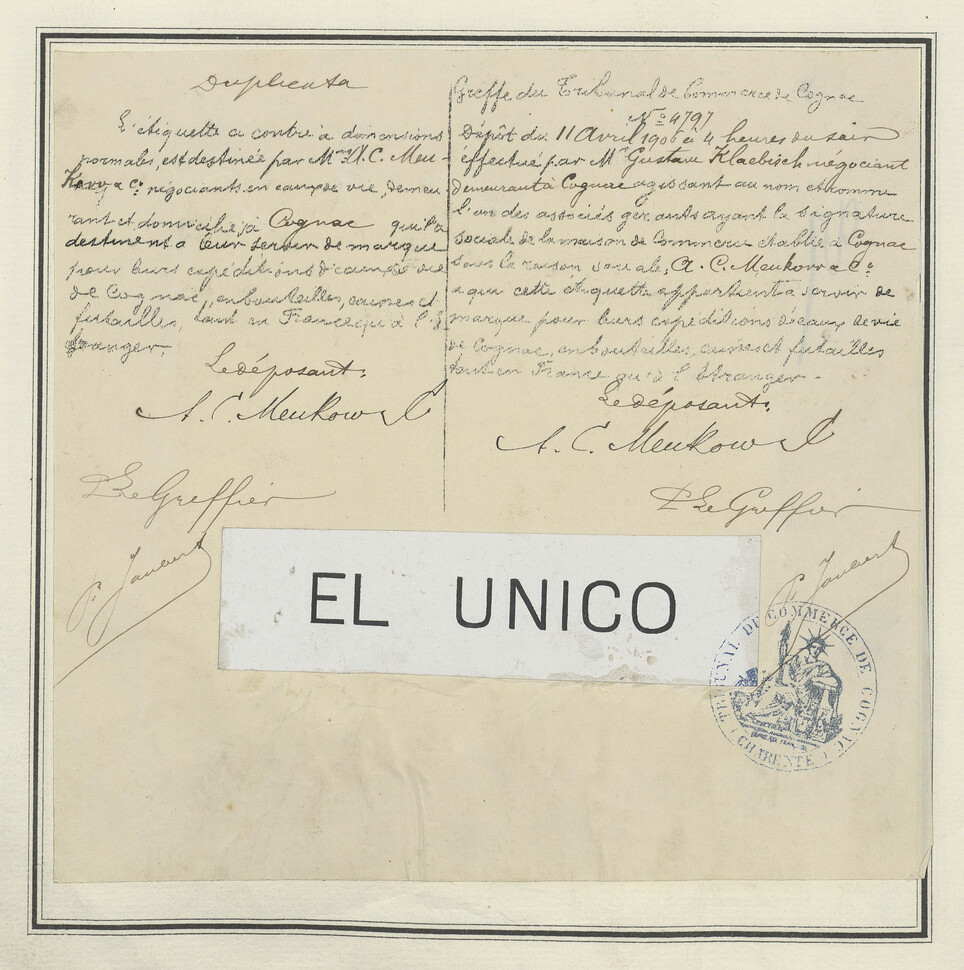 Duplicata
L'étiquette ci contre à dimensions
normales, est destinée par Mrs A. C. Meu-
Kow & Co négociants en eaux de vie, demeu-
rant et domiciliés à Cognac qu'ils
destinent à leur servir de marque
pour leurs expéditions d'eaux de vie
de Cognac, en bouteilles, caisses et
futailles, tant en France qu'à l'é-
tranger.
Le déposant:
A. C. Meukow & C
P. Le Greffier
P. Jaubert
Greffe du Tribunal de Commerce de Cognac
No 4797
Dépôt du 11 Avril 1906 à 4 heures du soir
effectué par Mr Gustave Klaebisch négociant
demeurant à Cognac agissant au nom et comme
l'un des associés gérants ayant la signature
sociale de la maison de Commerce établie à Cognac
sous la raison sociale; A. C. Meukow & Co
a qui cette étiquette appartient à servir de
marque pour leurs expéditions d'eaux de vie
de Cognac, en bouteilles, caisses et futailles
tant en France qu'à l'étranger.
Le déposant:
A. C. Meukow & C
P. Le Greffier
EL UNICO
TRIBUNAL DE COMMERCE DE COGNAC
(CHARENTE)